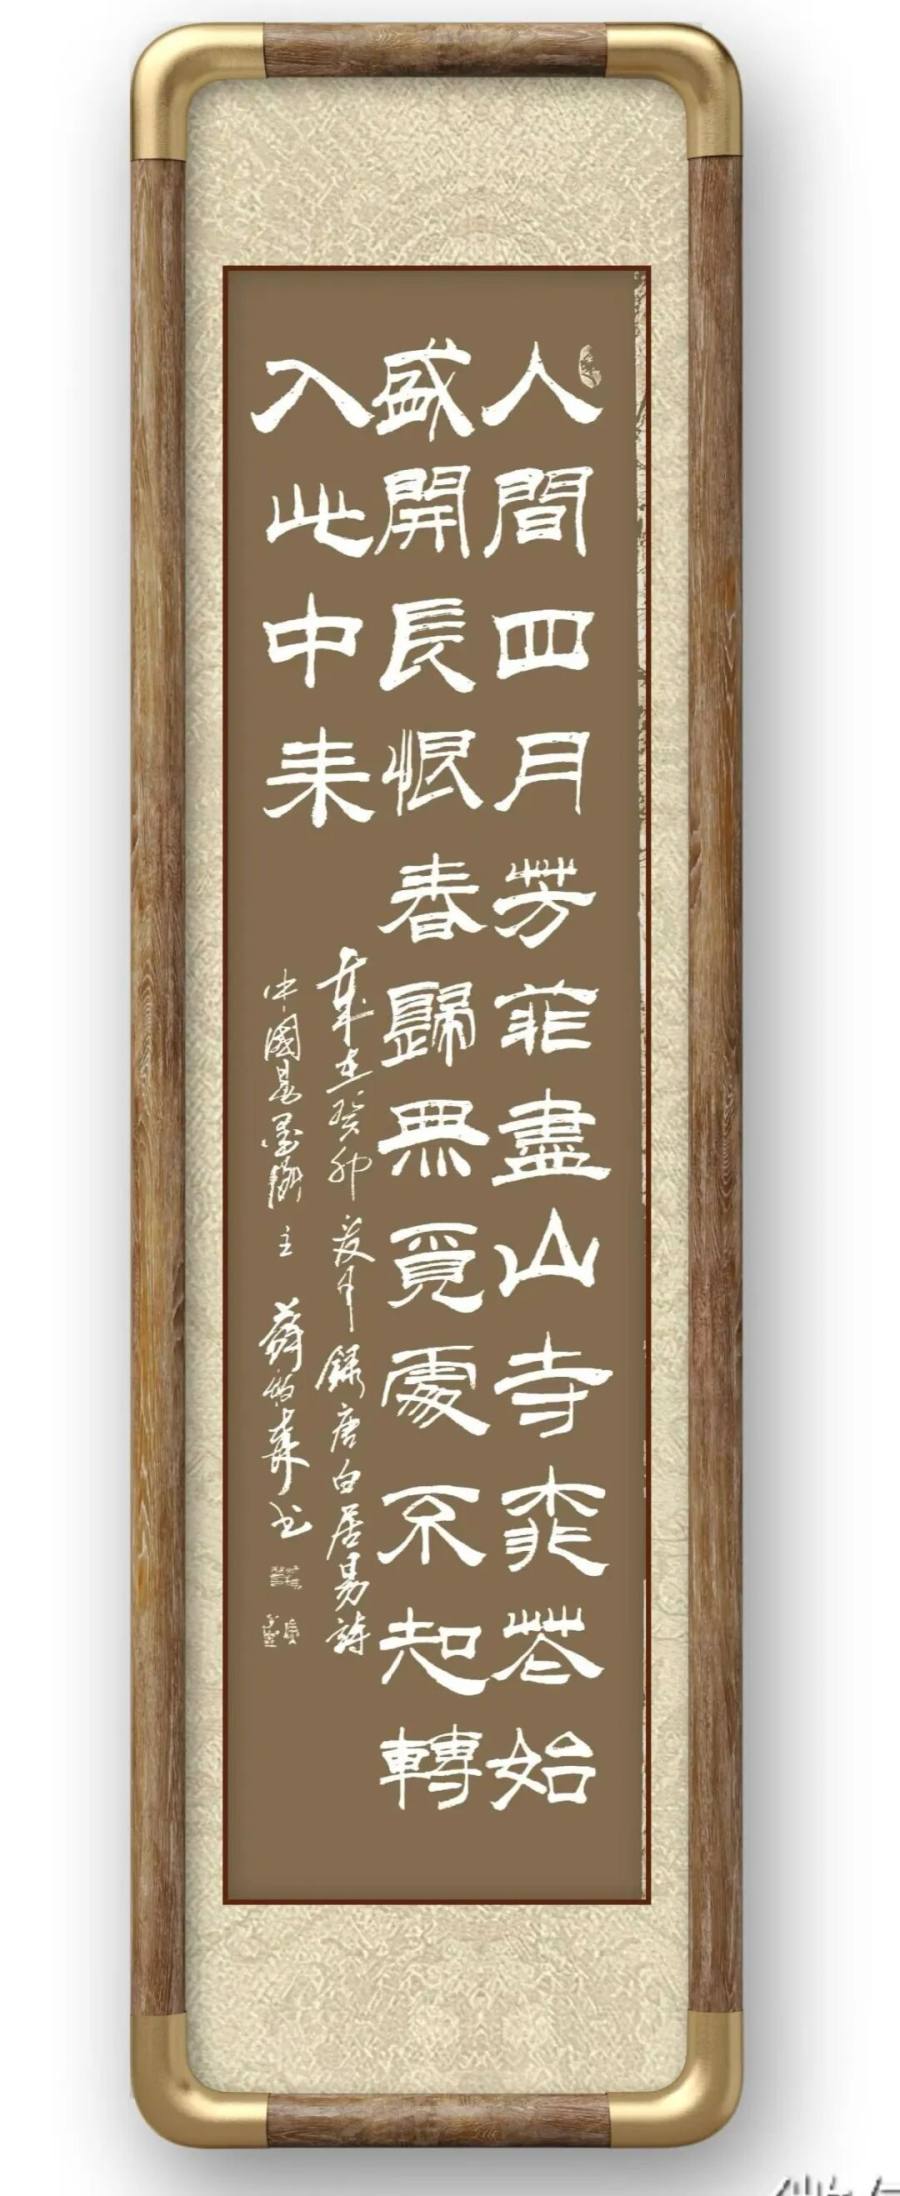 人間四月芳菲盡山寺桃花始
盛開長恨春歸無覓處不知轉
入此中来
歲在癸卯夏月錄唐白居易詩
中國易墨齋主薛書